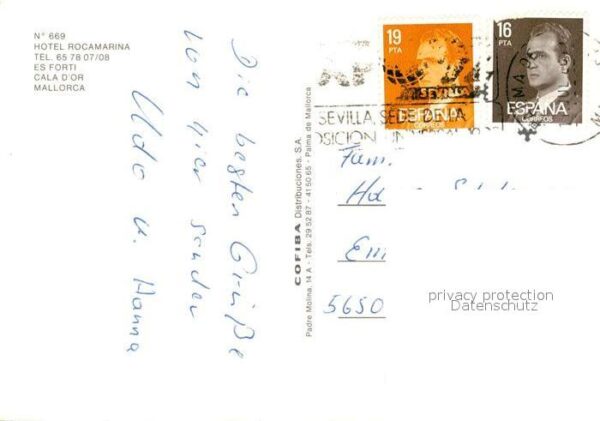 N° 669
HOTEL ROCAMARINA
TEL. 65 78 07/08
ES FORTI
CALA D'OR
MALLORCA
Die besten Grüße
von hier senden
Udo u. Hanna
COFIBA Distribuciones, S.A.
Padre Molina, 14 A - Tels. 29 52 87 - 41 50 65 - Palma de Mallorca
19
PTA
ESPAÑA
16
PTA
ESPAÑA
CORREOS
SEVILLA, SEDE DE LA
Fam.
5650
privacy protection
Datenschutz